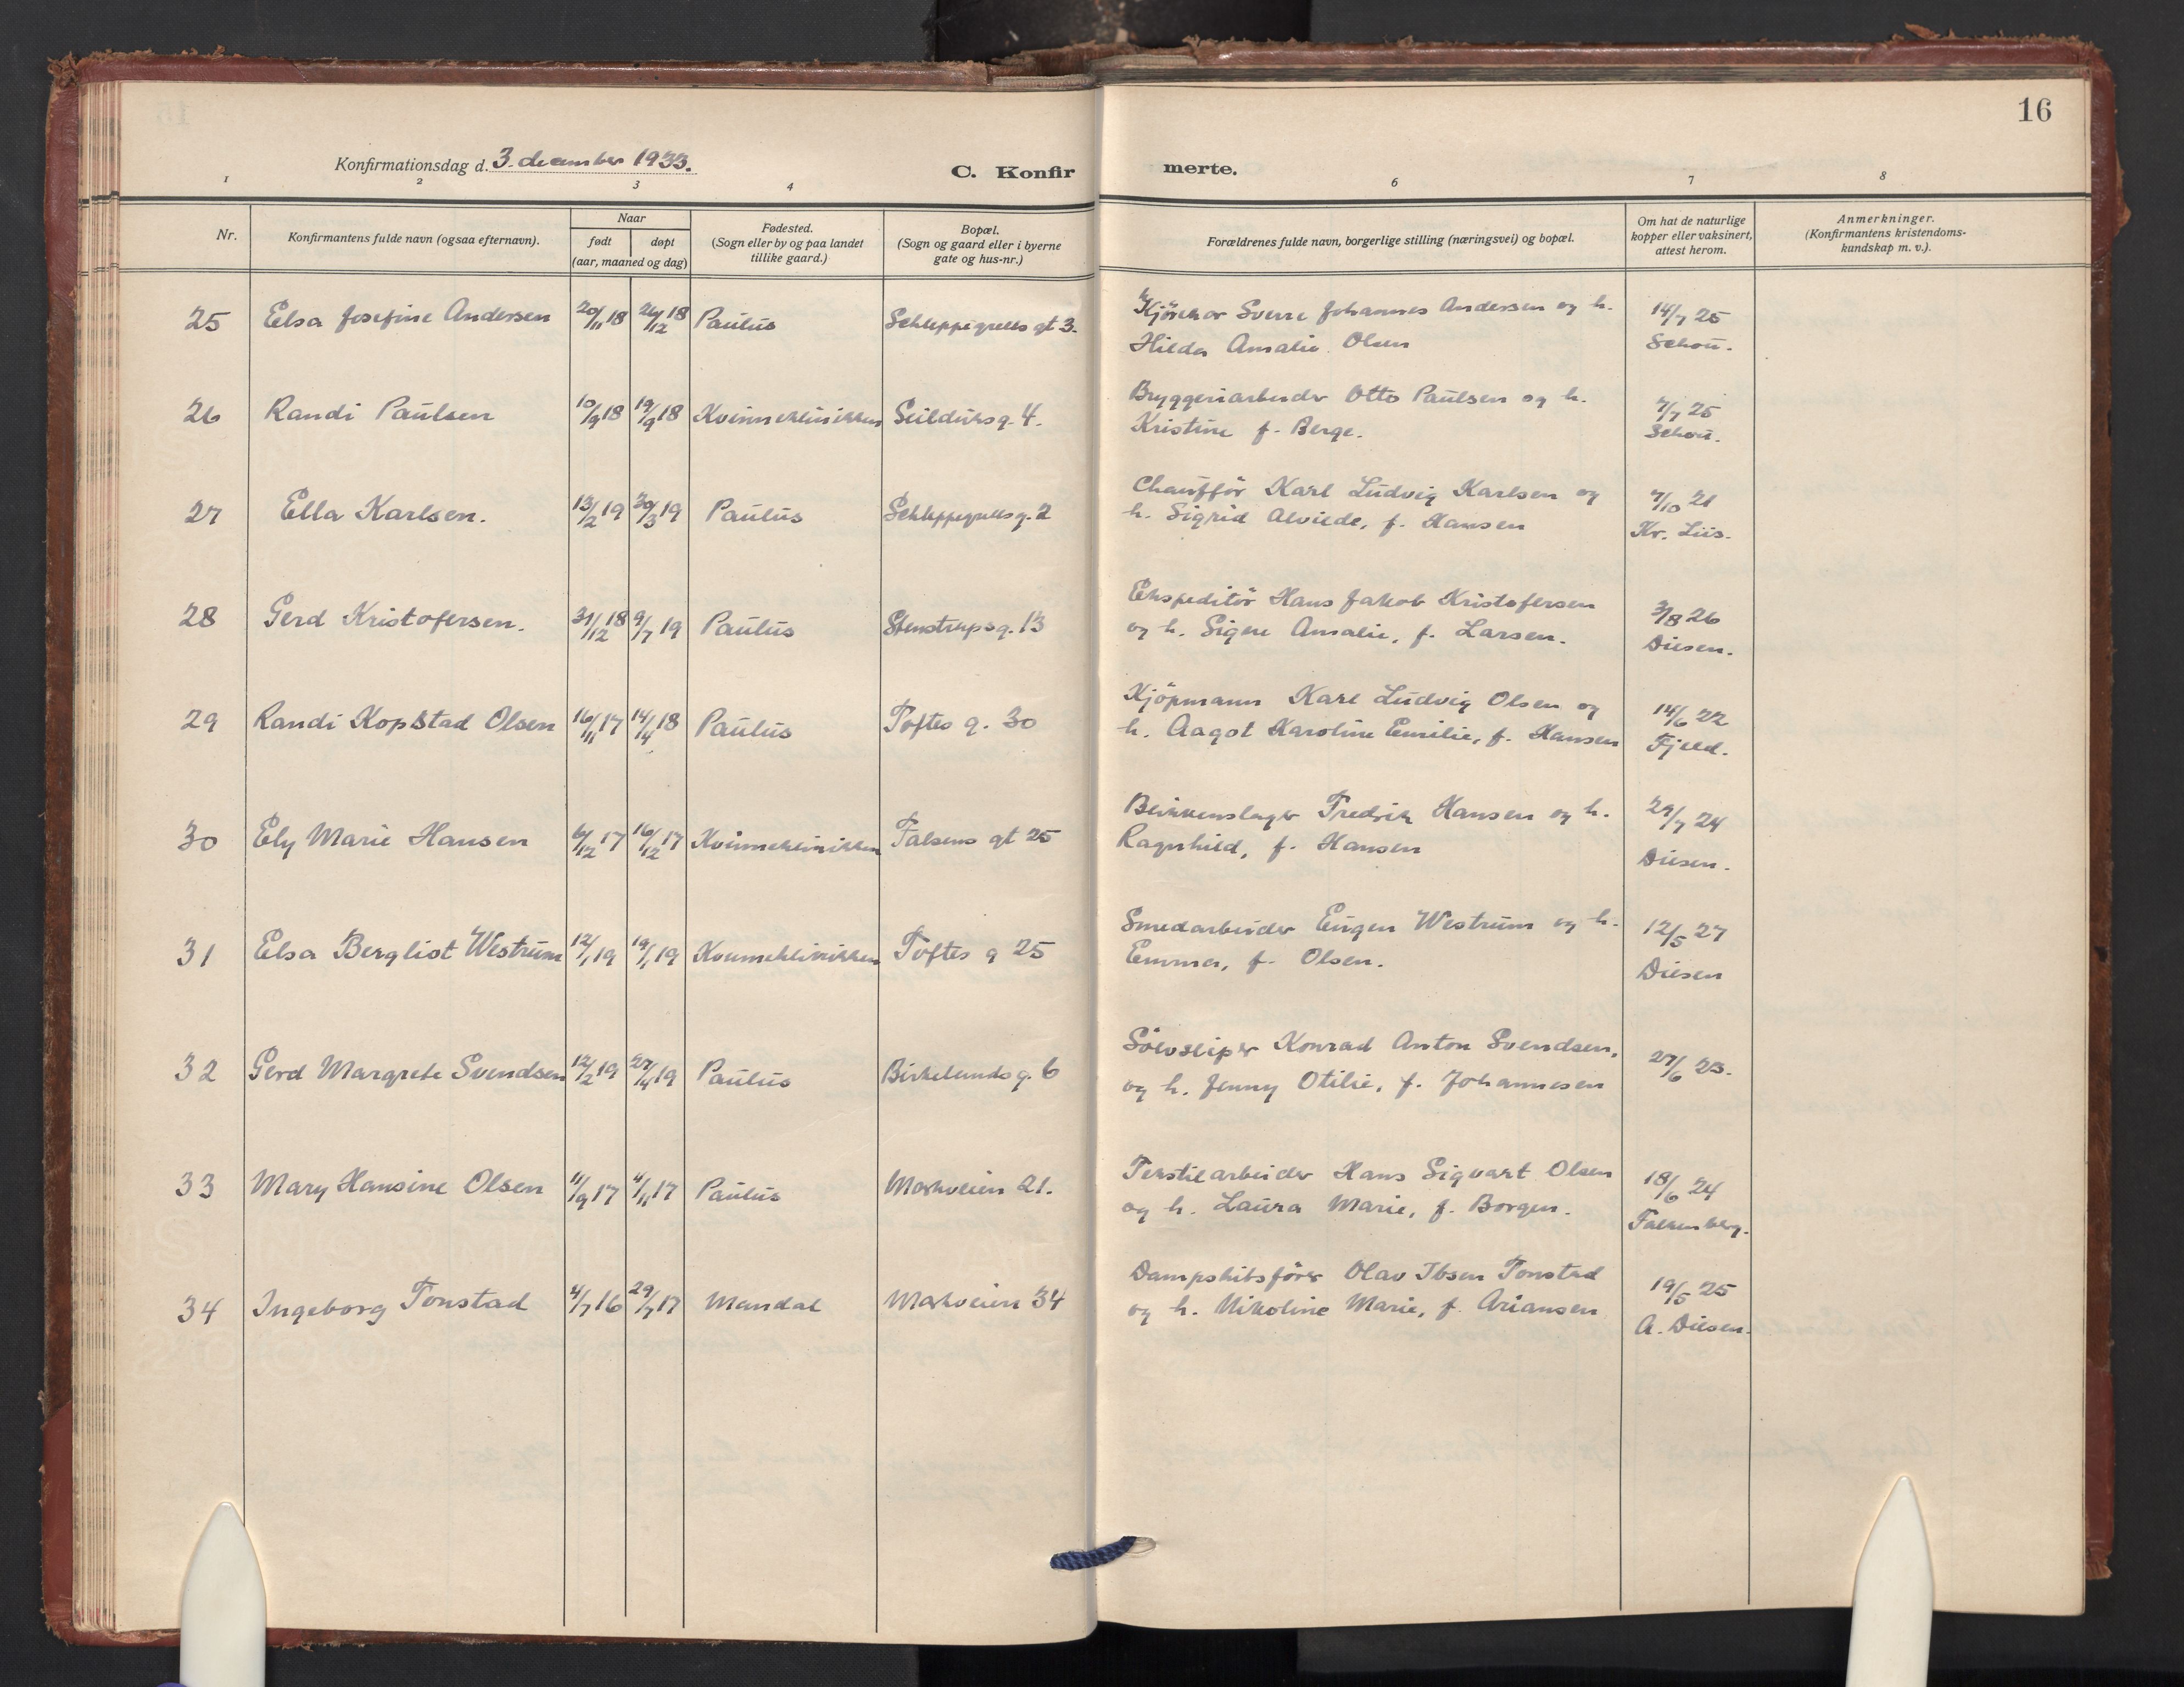 16
Konfirmationsdag d. 3. december 1933.
C. Konfir merte.
1 2 3 4 6 7 8
Nr.
Konfirmantens fulde navn (ogsaa efternavn).
Naar
født døpt
(aar, maaned og dag)
Fødested.
(Sogn eller by og paa landet
tillike gaard.)
Bopæl.
(Sogn og gaard eller i byerne
gate og hus-nr.)
Forældrenes fulde navn, borgerlige stilling (næringsvei) og bopæl.
Om hat de naturlige
kopper eller vaksinert,
attest herom.
Anmerkninger.
(Konfirmantens kristendoms-
kundskap m. v.).
25 Elsa Josefine Andersen 20/11 18 26/12 18 Paulus Schleppegrells gt 3.
Sverre Johannes Andersen og h.
Hilda Amalie Olsen
14/7 25
Schou.
26 Randi Paulsen 10/9 18 19/9 18 Kvinneklinikken Seilduksg. 4.
Bryggeriarbeider Otto Paulsen og h.
Kristine f. Berge.
7/7 25
Schou.
27 Ella Karlsen. 13/2 19 30/3 19 Paulus Schleppegrellsg. 2
Chaufför Karl Ludvig Karlsen og
h. Sigrid Alvilde, f. Hansen
7/10 21
Kr. Lüs.
28 Gerd Kristofersen. 31/12 18 9/7 19 Paulus Stenstrupsg. 13
Ekspeditör Hans Jakob Kristofersen
og h. Signe Amalie, f. Larsen.
3/8 26
Diesen.
29 Randi Kopstad Olsen 16/11 17 14/4 18 Paulus Toftes g. 30
Kjöpmann Karl Ludvig Olsen og
h. Aagot Karoline Emilie, f. Hansen
14/6 22
Fjeld.
30 Ely Marie Hansen 6/12 17 16/12 17 Kvinneklinikken Falsens gt 25
Blikkenslager Fredrik Hansen og h.
Ragnhild, f. Hansen
29/7 24
Diesen.
31 Elsa Bergliot Westrum 12/1 19 19/1 19 Kvinneklinikken Toftes g 25
Smedarbeider Eugen Westrum og h.
Emma, f. Olsen.
12/5 27
Diesen
32 Gerd Margrete Svendsen 12/2 19 27/4 19 Paulus Birkelunds g. 6
Sölvsliper Konrad Anton Svendsen,
og h. Jenny Otilie, f. Johannesen
27/6 23.
33 Mary Hansine Olsen 11/9 17 4/11 17 Paulus Markveien 21.
Tekstilarbeider Hans Sigvart Olsen
og h. Laura Marie, f. Borgen.
18/6 24
Falkenberg.
34 Ingeborg Tonstad 4/7 16 29/7 17 Mandal Markveien 34
Dampskibsförer Olav Ibsen Tonstad
og h. Nikoline Marie, f. Ariansen
19/5 25
A. Diesen.